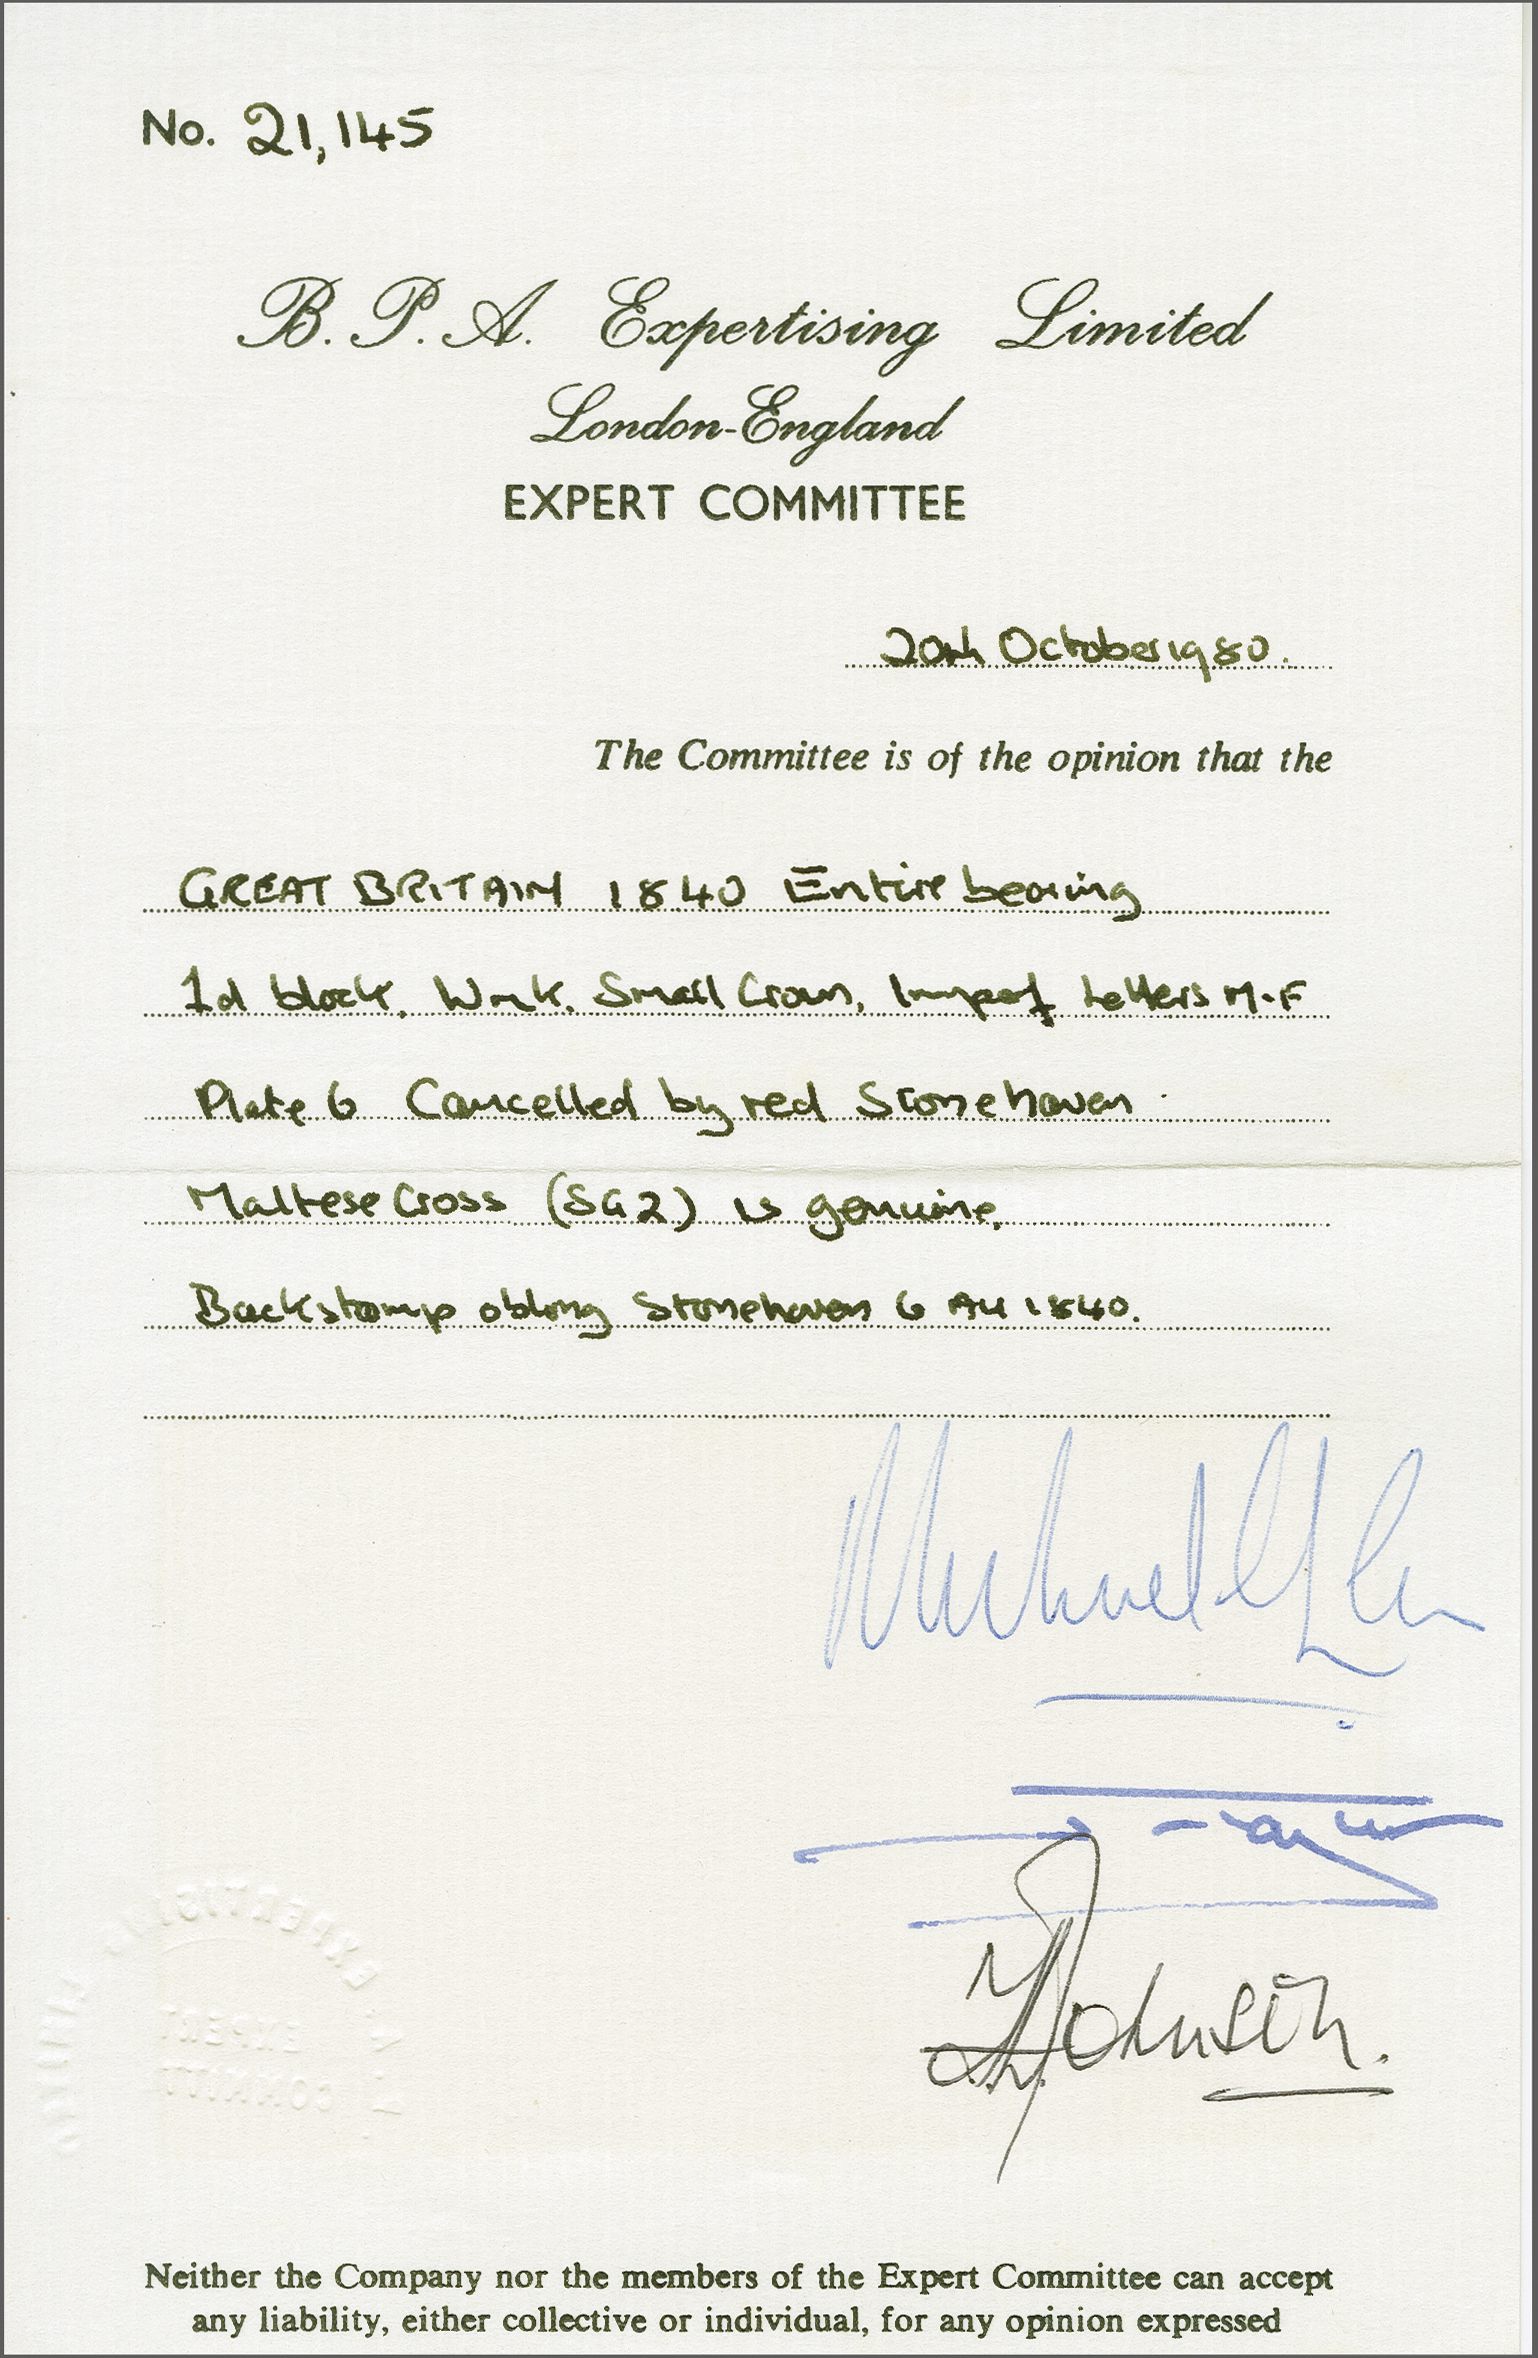 No. 21,145
B. P. A. Expertising Limited
London-England
EXPERT COMMITTEE
20th October 1980.
The Committee is of the opinion that the
GREAT BRITAIN 1840 Entire bearing
1d black, Wmk. Small Crown, Imperf Letters M-F
Plate 6 Cancelled by red Stonehaven
Maltese Cross (SG2) is genuine.
Backstamp oblong Stonehaven 6 AU 1840.
Michael
Johnson.
EXPERTISING
LIMITED
EXPERT
COMMITT
Neither the Company nor the members of the Expert Committee can accept
any liability, either collective or individual, for any opinion expressed